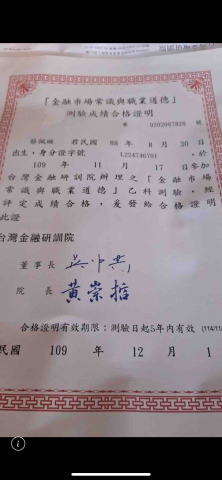 「金融市場常識與職業道德」
測驗成績合格證明
9202067828 號
蔡佩珊 君民國 88 年 8 月 20 日
出生,身分證字號 L224746781 ,於
109 年 11 月 17 日參加
台灣金融研訓院辦理之「金融市場
常識與職業道德」乙科測驗,經
評定成績合格,爰發給合格證明
此證
台灣金融研訓院
董事長 吳中書
院 長 黃崇哲
合格證明有效期限:測驗日起5年內有效 (114/11/
民國 109 年 12 月 1